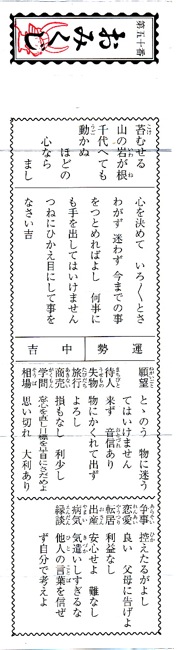 第五十番
おみくじ
苔むせる
山の岩が根
千代へても
動かぬ
ほどの
心なら
まし
心を決めて いろ〱とさ
わがず 迷わず 今までの事
をつとめればよし 何事に
も手を出してはいけません
つねにひかえ目にして事を
なさい吉
運勢 中吉
願望 とゝのう 物に迷う
てはいけません
待人 来ず 音信あり
失物 物にかくれて出ず
旅行 よろし
商売 損もなし 利少し
学問
相場 思い切れ 大利あり
争事 控えたるがよし
恋愛 良い 父母に告げよ
転居 利益なし
出産 安心せよ 難なし
病気 気遣いしすぎるな
縁談 他人の言葉を信ぜ
ず自分で考えよ